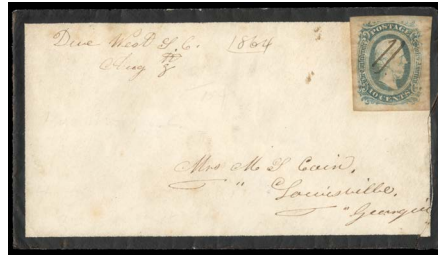 Due West S. C. 1864
Aug
POSTAGE
10 CENTS
Mrs M
Cain,
" Louisville.
" Georgia